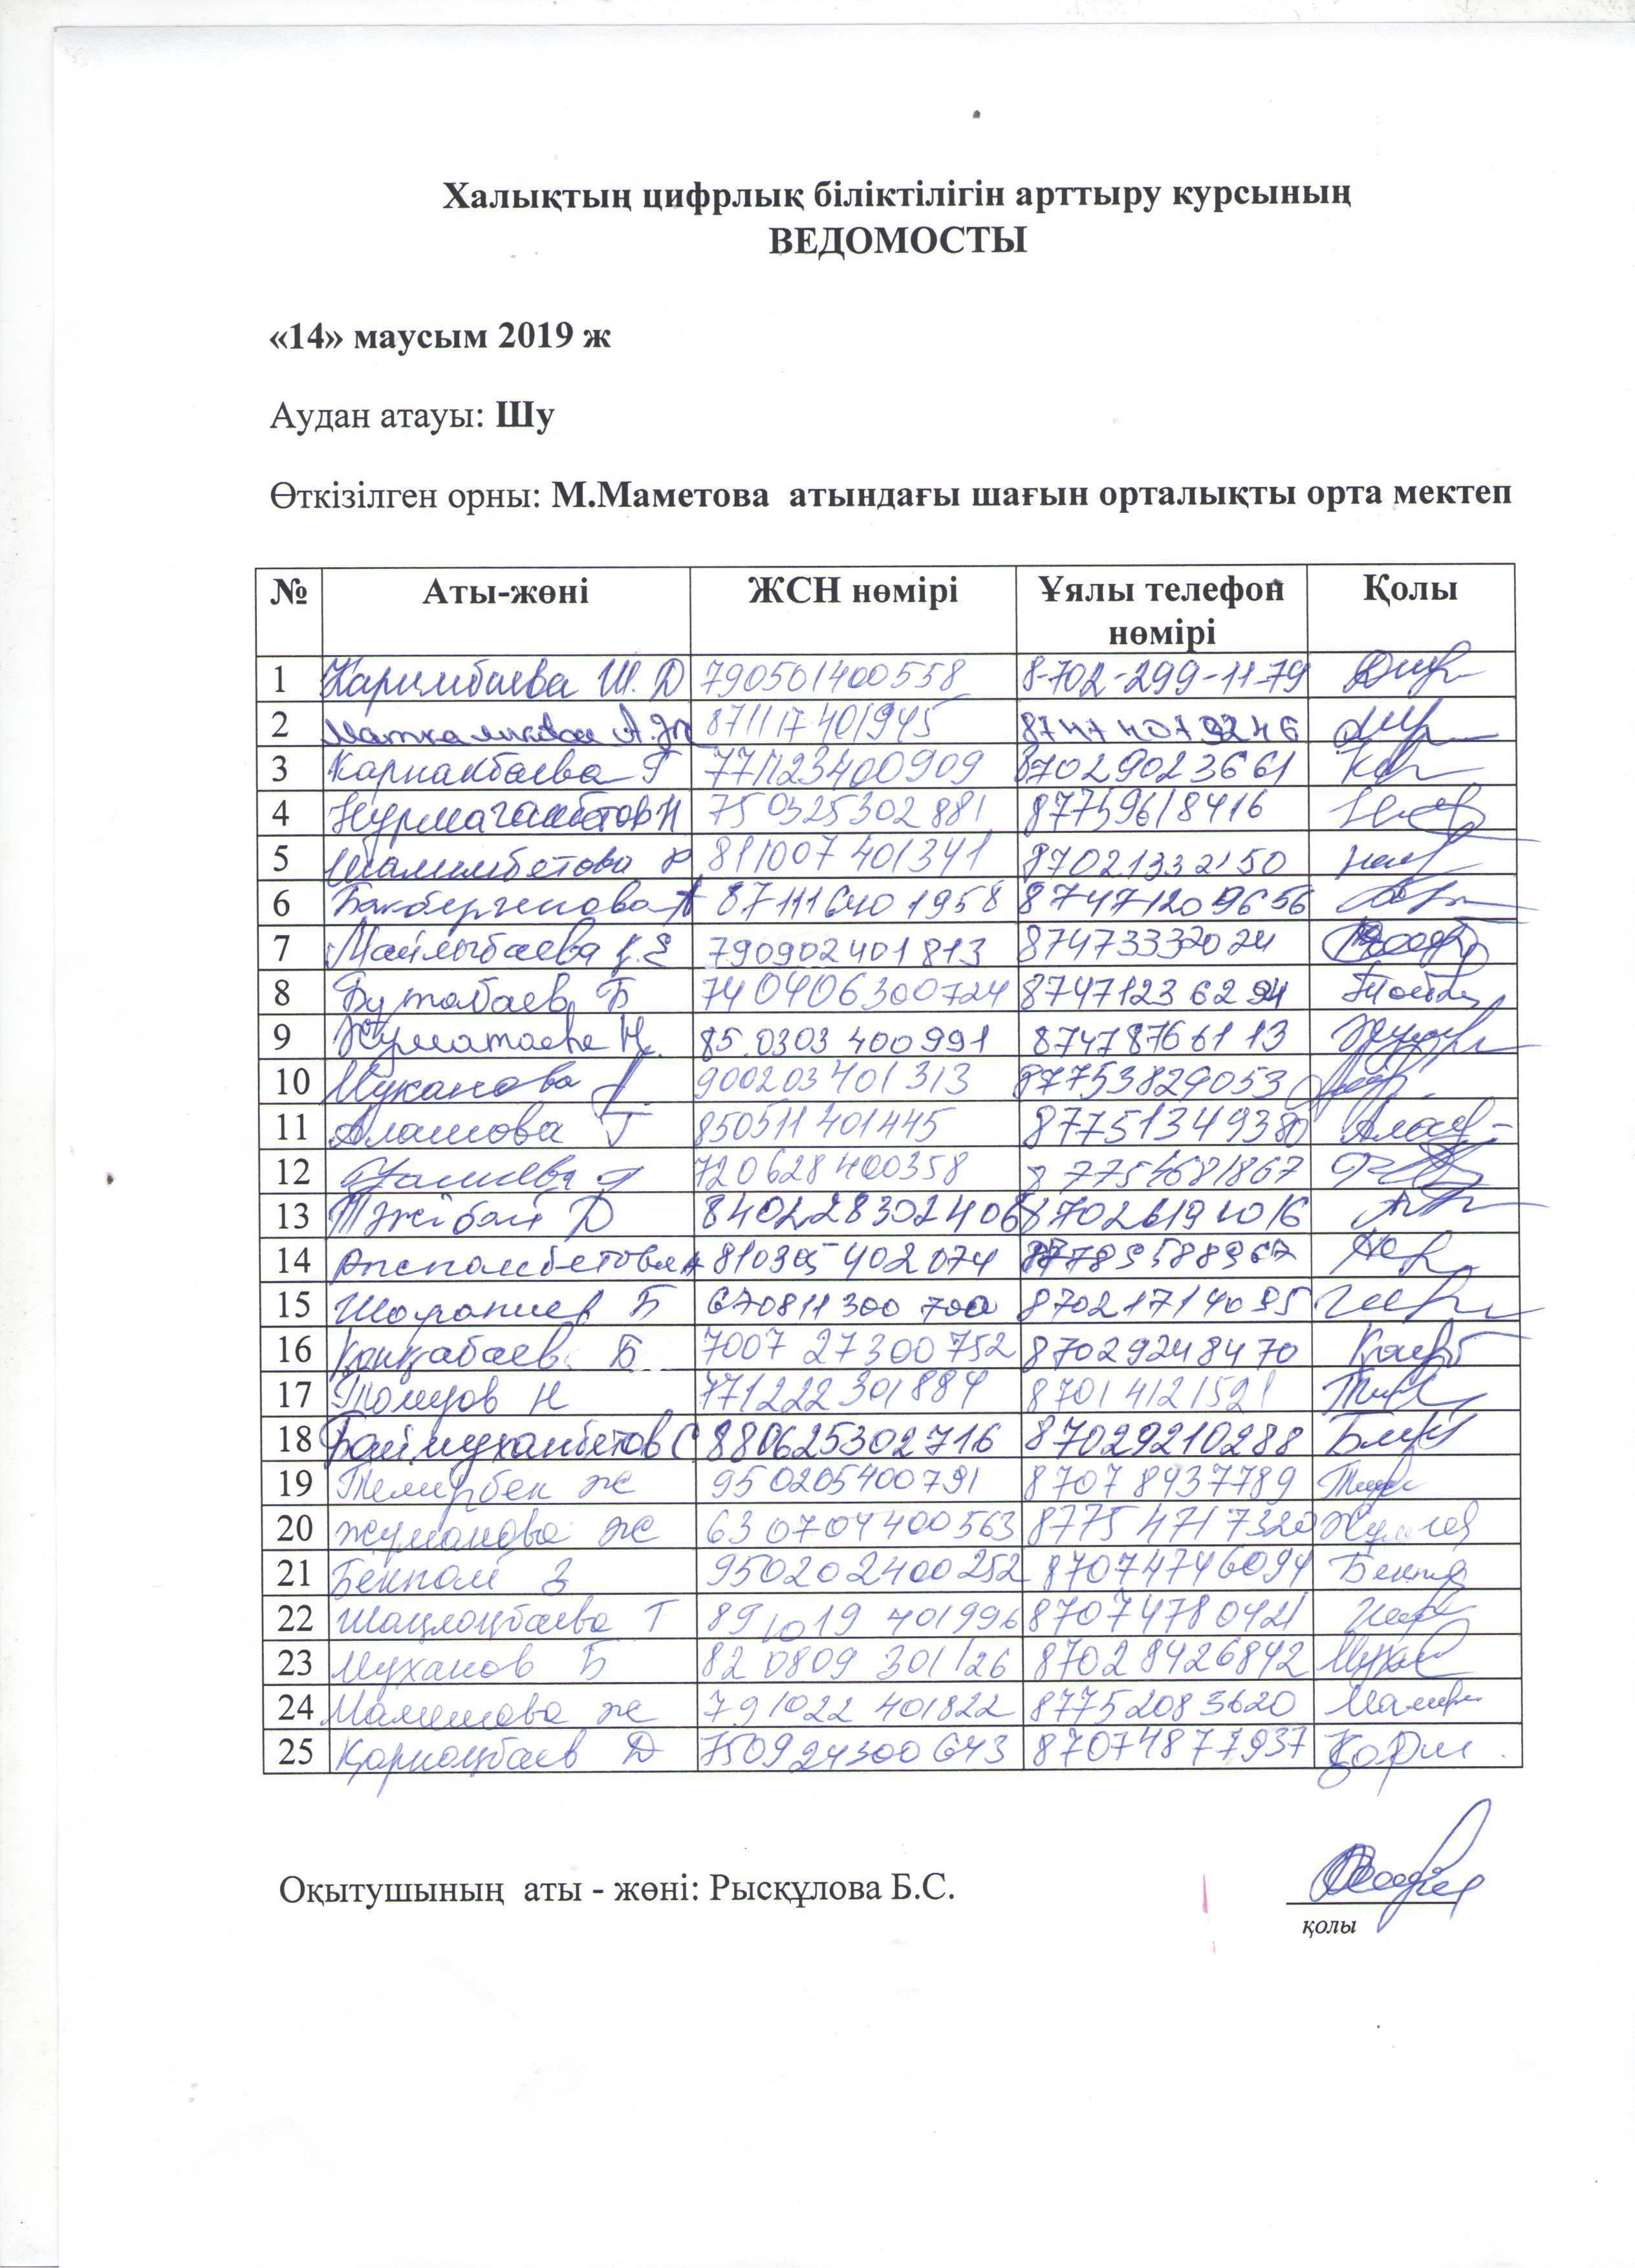 Халықтың цифрлық біліктілігін арттыру курсының
ВЕДОМОСТЫ
«14» маусым 2019 ж
Аудан атауы: Шу
Өткізілген орны: М.Маметова атындағы шағын орталықты орта мектеп
№ Аты-жөні ЖСН нөмірі Ұялы телефон нөмірі Қолы
1 Каримбаева Ш. Д 790501400558 8-702-299-11-79
2 871117401945
3 Карнакбаева Г 771123400909 87029023661
4 Нурмагамбетов Н 750325302881 87759618416
5 Шалимбетова 811007401341 87021332150
6 Бакбергенова А 871116401958 87471209656
7 Майлыбаева Қ.Е 790902401813 87473332024
8 Бутабаев Б 740406300724 87471236294
9 Журматаева Н. 85.0303 400991 87478766113
10 Муканова 900203401313 87753829053
11 Алашова Г 850511401445 87751349380
12 720628400358 87754681867
13 Тәжібай Д 840228302406 87026191016
14 402074
15 Шарапиев Б 670811300700 87021714095
16 Қаңқабаев Б 700727300752 87029248470
17 Н 771222301884 87014121521
18 Баймуханбетов С 880625302716 87029210288
19 Темирбек Ж 950205400791 87078937789
20 Жуманова Ж 630704400563 87754717320
21 Бекпай З 950202400252 87074746094
22 Т 891019 401996 87074780421
23 Муханов Б 820809 301126 87028426842
24 Мамишова Ж 791022 401822 87752083620
25 Д 750924300643 87074877937
Оқытушының аты - жөні: Рысқұлова Б.С.
қолы